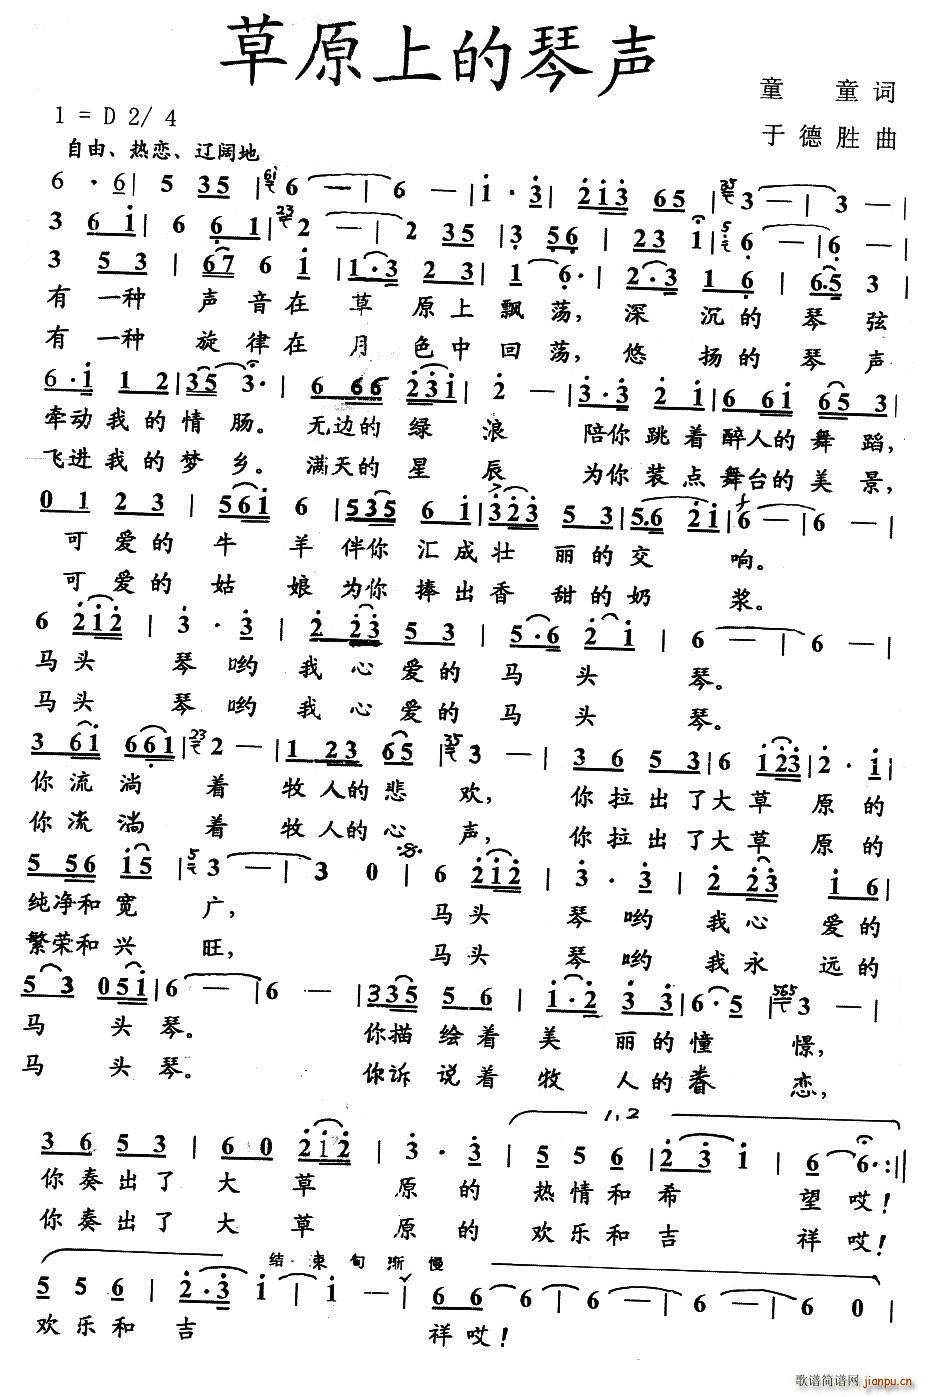 草原上的琴声
童 童 词
1 = D 2/ 4
于 德 胜 曲
自由、热恋、辽阔地
6 · 6 | 5 3 5 | 6 — | 6 — | i · 3 | 2 i 3 6 5 | 3 — | 3 — |
3 6 i | 6 6 1 | 2 — | 2 3 5 | 3 5 6 | 2 3 1 | 6 — | 6 — |
3 5 3 | 6 7 6 i | 1 · 3 2 3 | 1 6 · | 2 · 3 1 6 | 6 · 5 3 |
有 一种 声 音 在 草 原 上 飘 荡, 深 沉 的 琴 弦
有 一种 旋 律 在 月 色 中 回 荡, 悠 扬 的 琴 声
6 · i 1 2 | 3 5 3 · | 6 6 6 2 3 i | 2 — | 3 · 3 2 i | 6 6 i 6 5 3 |
牵动 我 的 情 肠。 无边的 绿 浪 陪你 跳 着 醉人的 舞 蹈,
飞进 我 的 梦 乡。 满天的 星 辰 为你 装 点 舞台的 美 景,
0 1 2 3 | 5 6 i 6 | 5 3 5 6 i | 3 2 3 5 3 | 5 · 6 2 i | 6 — | 6 — |
可 爱 的 牛 羊 伴你 汇 成 壮 丽 的 交 响。
可 爱 的 姑 娘 为你 捧 出 香 甜 的 奶 浆。
6 2 i 2 | 3 · 3 | 2 2 3 5 3 | 5 · 6 2 i | 6 — | 6 — |
马 头 琴 哟 我 心 爱 的 马 头 琴。
马 头 琴 哟 我 心 爱 的 马 头 琴。
3 6 i 6 6 1 | 2 — | 1 2 3 6 5 | 3 — | 3 6 5 3 | 6 i 2 3 | 2 · i |
你 流 淌 着 牧 人 的 悲 欢, 你 拉 出 了 大 草 原 的
你 流 淌 着 牧 人 的 心 声, 你 拉 出 了 大 草 原 的
5 5 6 i 5 | 3 — | 3 0 | 6 2 i 2 | 3 · 3 | 2 2 3 i 6 |
纯净和 宽 广, 马 头 琴 哟 我 心 爱 的
繁荣和 兴 旺, 马 头 琴 哟 我 永 远 的
5 3 0 5 i | 6 — | 6 — | 3 3 5 5 6 | i · 2 3 3 | 6 · 5 | 3 — |
马 头 琴。 你描 绘 着 美 丽 的 憧 憬,
马 头 琴。 你诉 说 着 牧 人 的 眷 恋,
1, 2
3 6 5 3 | 6 0 2 i 2 | 3 · 3 | 5 5 6 | 2 3 i | 6 6 · :||
你 奏 出 了 大 草 原 的 热 情 和 希 望 哎!
你 奏 出 了 大 草 原 的 欢 乐 和 吉 祥 哎!
结 束 句 渐 慢
5 5 6 | 2 · 3 i | i — | 6 6 6 | 6 — | 6 — | 6 0 |
欢 乐 和 吉 祥 哎!
歌谱简谱网 jianpu.cn